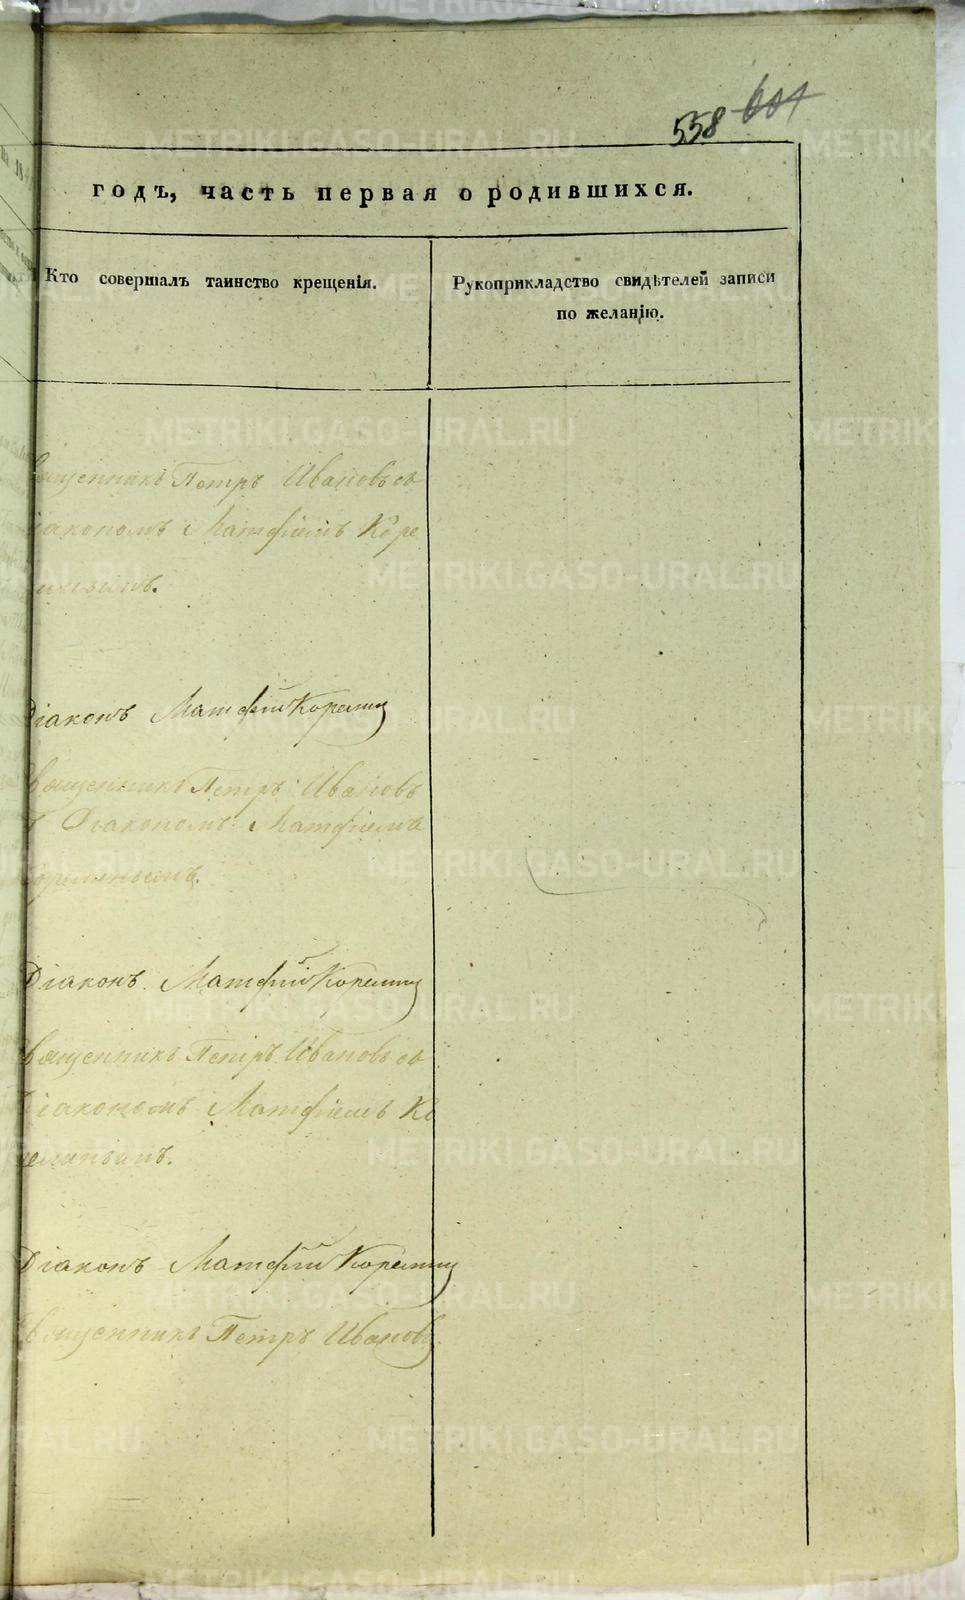 558 601
годъ, часть первая о родившихся.
Кто совершалъ таинство крещенія.
Рукоприкладство свидѣтелей записи
по желанію.
Священникъ Петръ Ивановъ съ
Діакономъ Матфіемъ Коре
Діаконъ Матфій Коремин
Священникъ Петръ Ивановъ
Діакономъ Матфіемъ
Діаконъ Матфій Коремин
Священникъ Петръ Ивановъ съ
Діакономъ Матфіемъ Ко
Діаконъ Матфій Коремин
Священникъ Петръ Ивановъ
METRIKI.GASO-URAL.RU